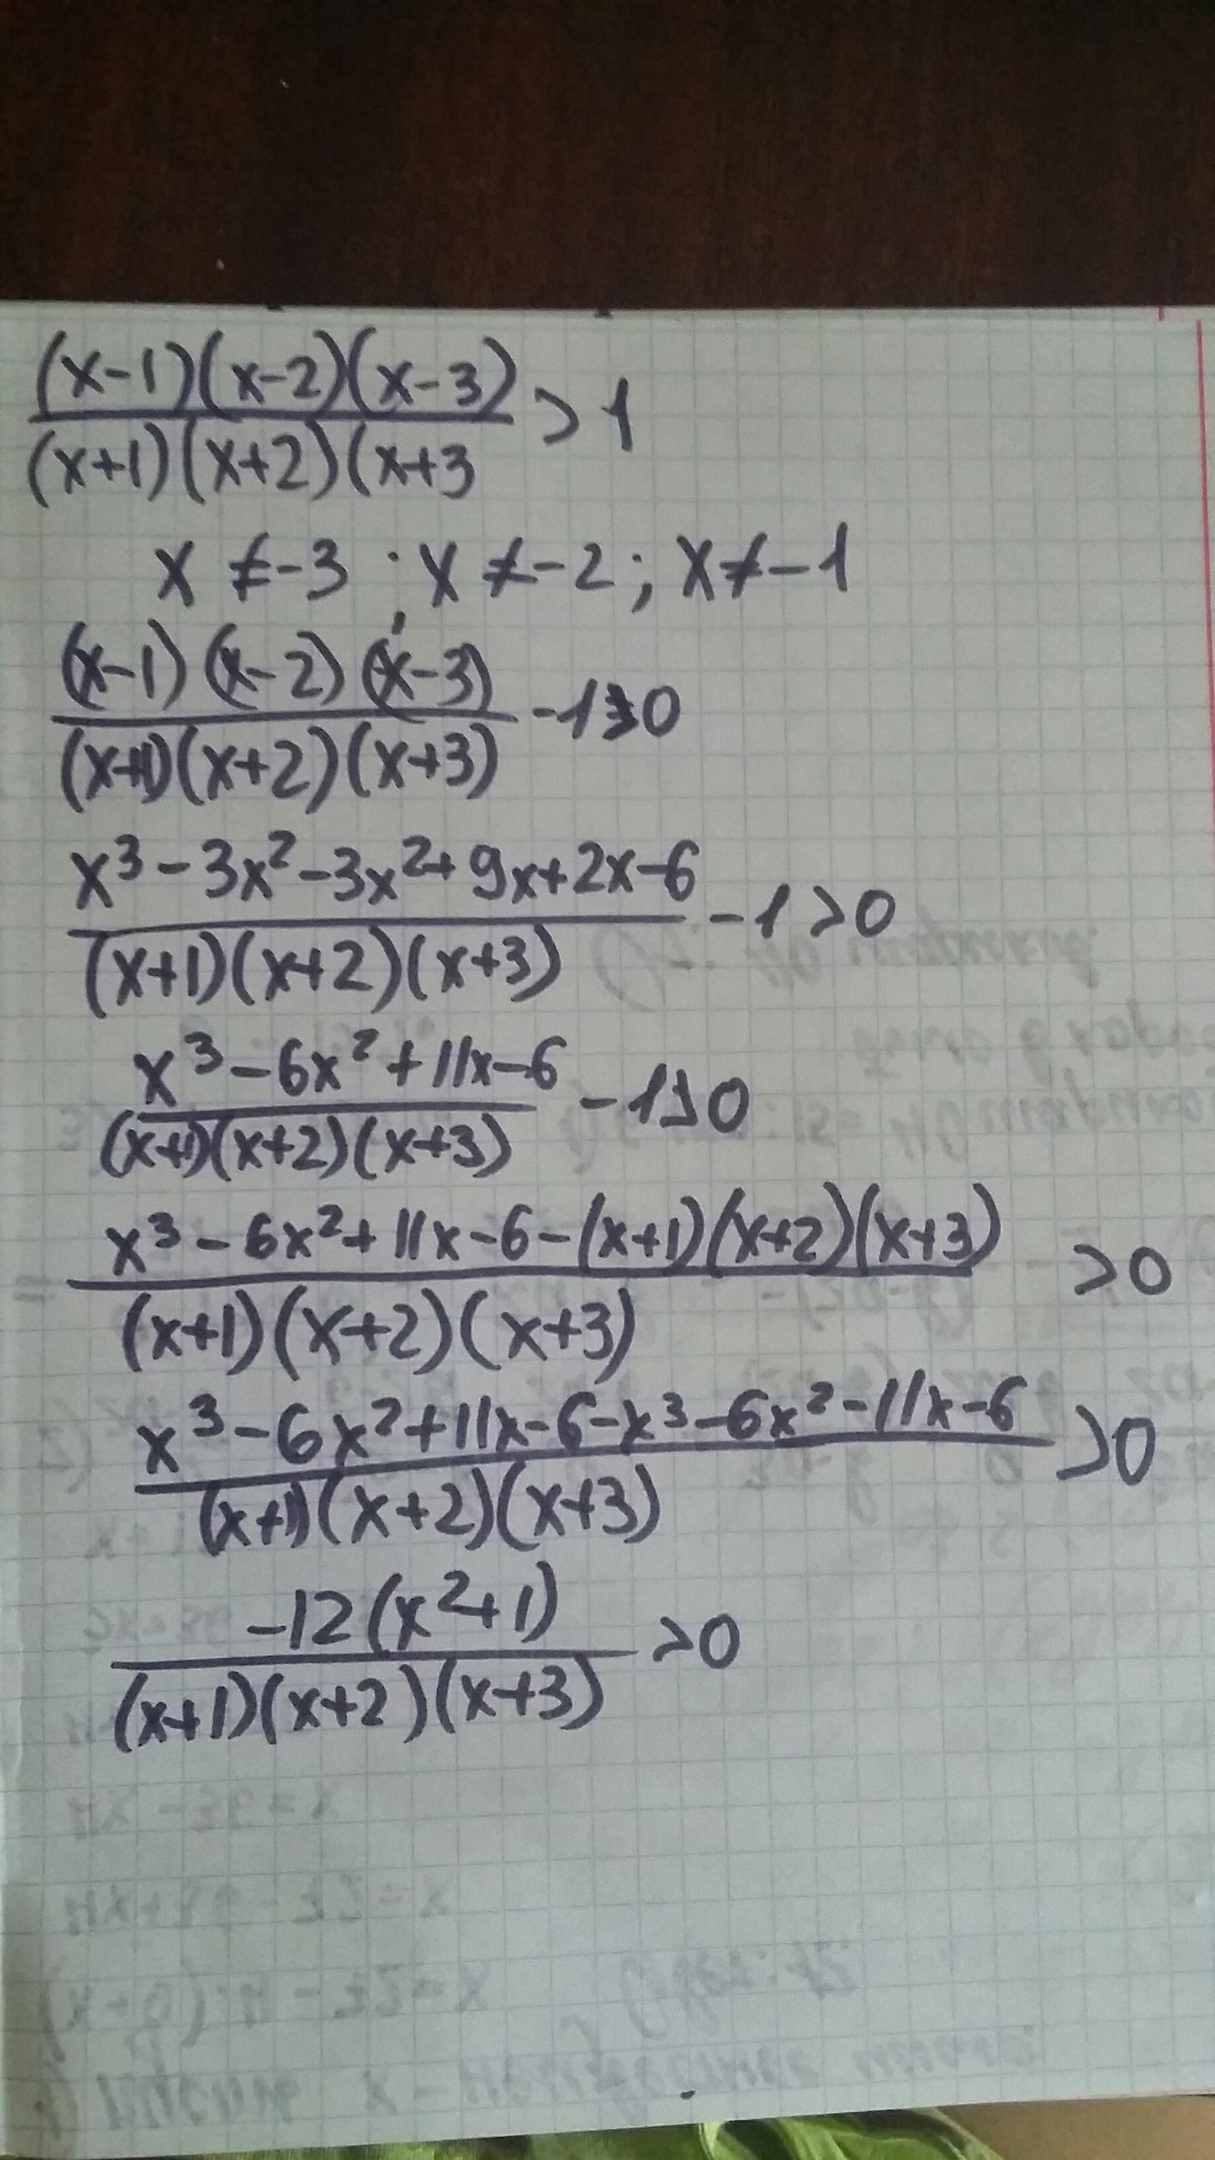 (x-1)(x-2)(x-3)
(x+1)(x+2)(x+3 >1
x ≠-3 ; x ≠-2; x≠-1
(x-1)(x-2)(x-3)
(x+1)(x+2)(x+3) -1>0
x³-3x²-3x²+9x+2x-6
(x+1)(x+2)(x+3) -1>0
x³-6x²+11x-6
(x+1)(x+2)(x+3) -1>0
x³-6x²+11x-6-(x+1)(x+2)(x+3)
(x+1)(x+2)(x+3) >0
x³-6x²+11x-6-x³-6x²-11x-6
(x+1)(x+2)(x+3) >0
-12(x²+1)
(x+1)(x+2)(x+3) >0